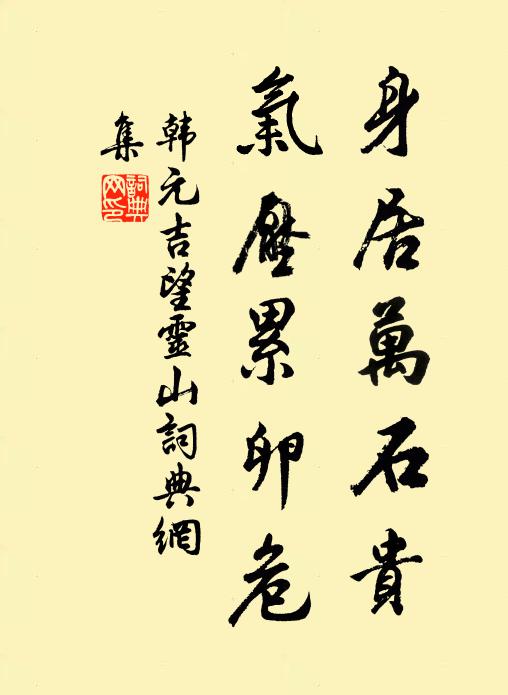 身居萬石貴
氣壓累卵危
韩元吉望靈山詞典網
集
詞典
网印